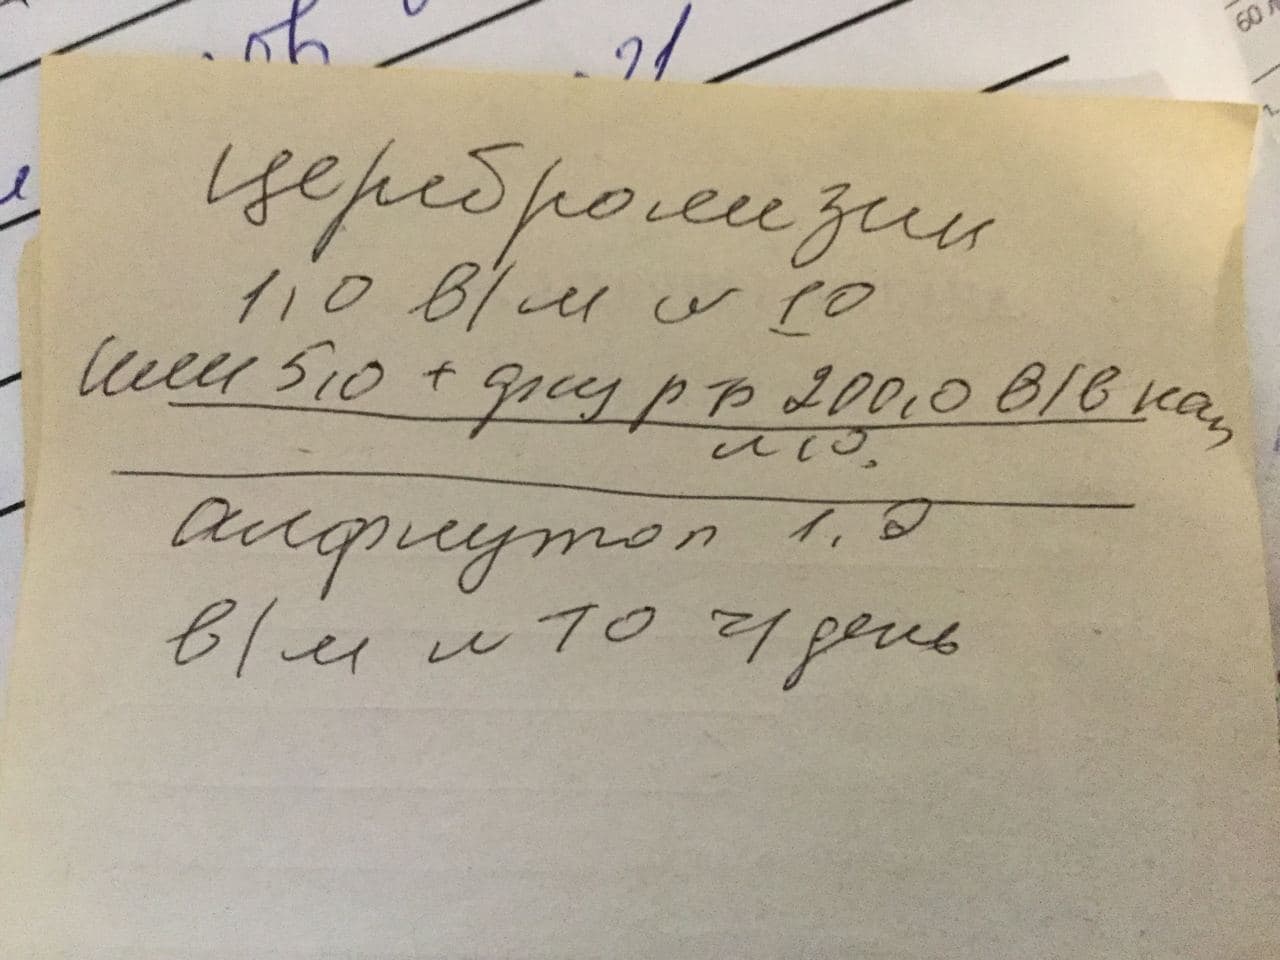 Церебролизин
1,0 в/м N 10
или 5,0 + физ р-р 200,0 в/в кап
N 10.
Алфлутоп 1,0
в/м N 10 ч/день